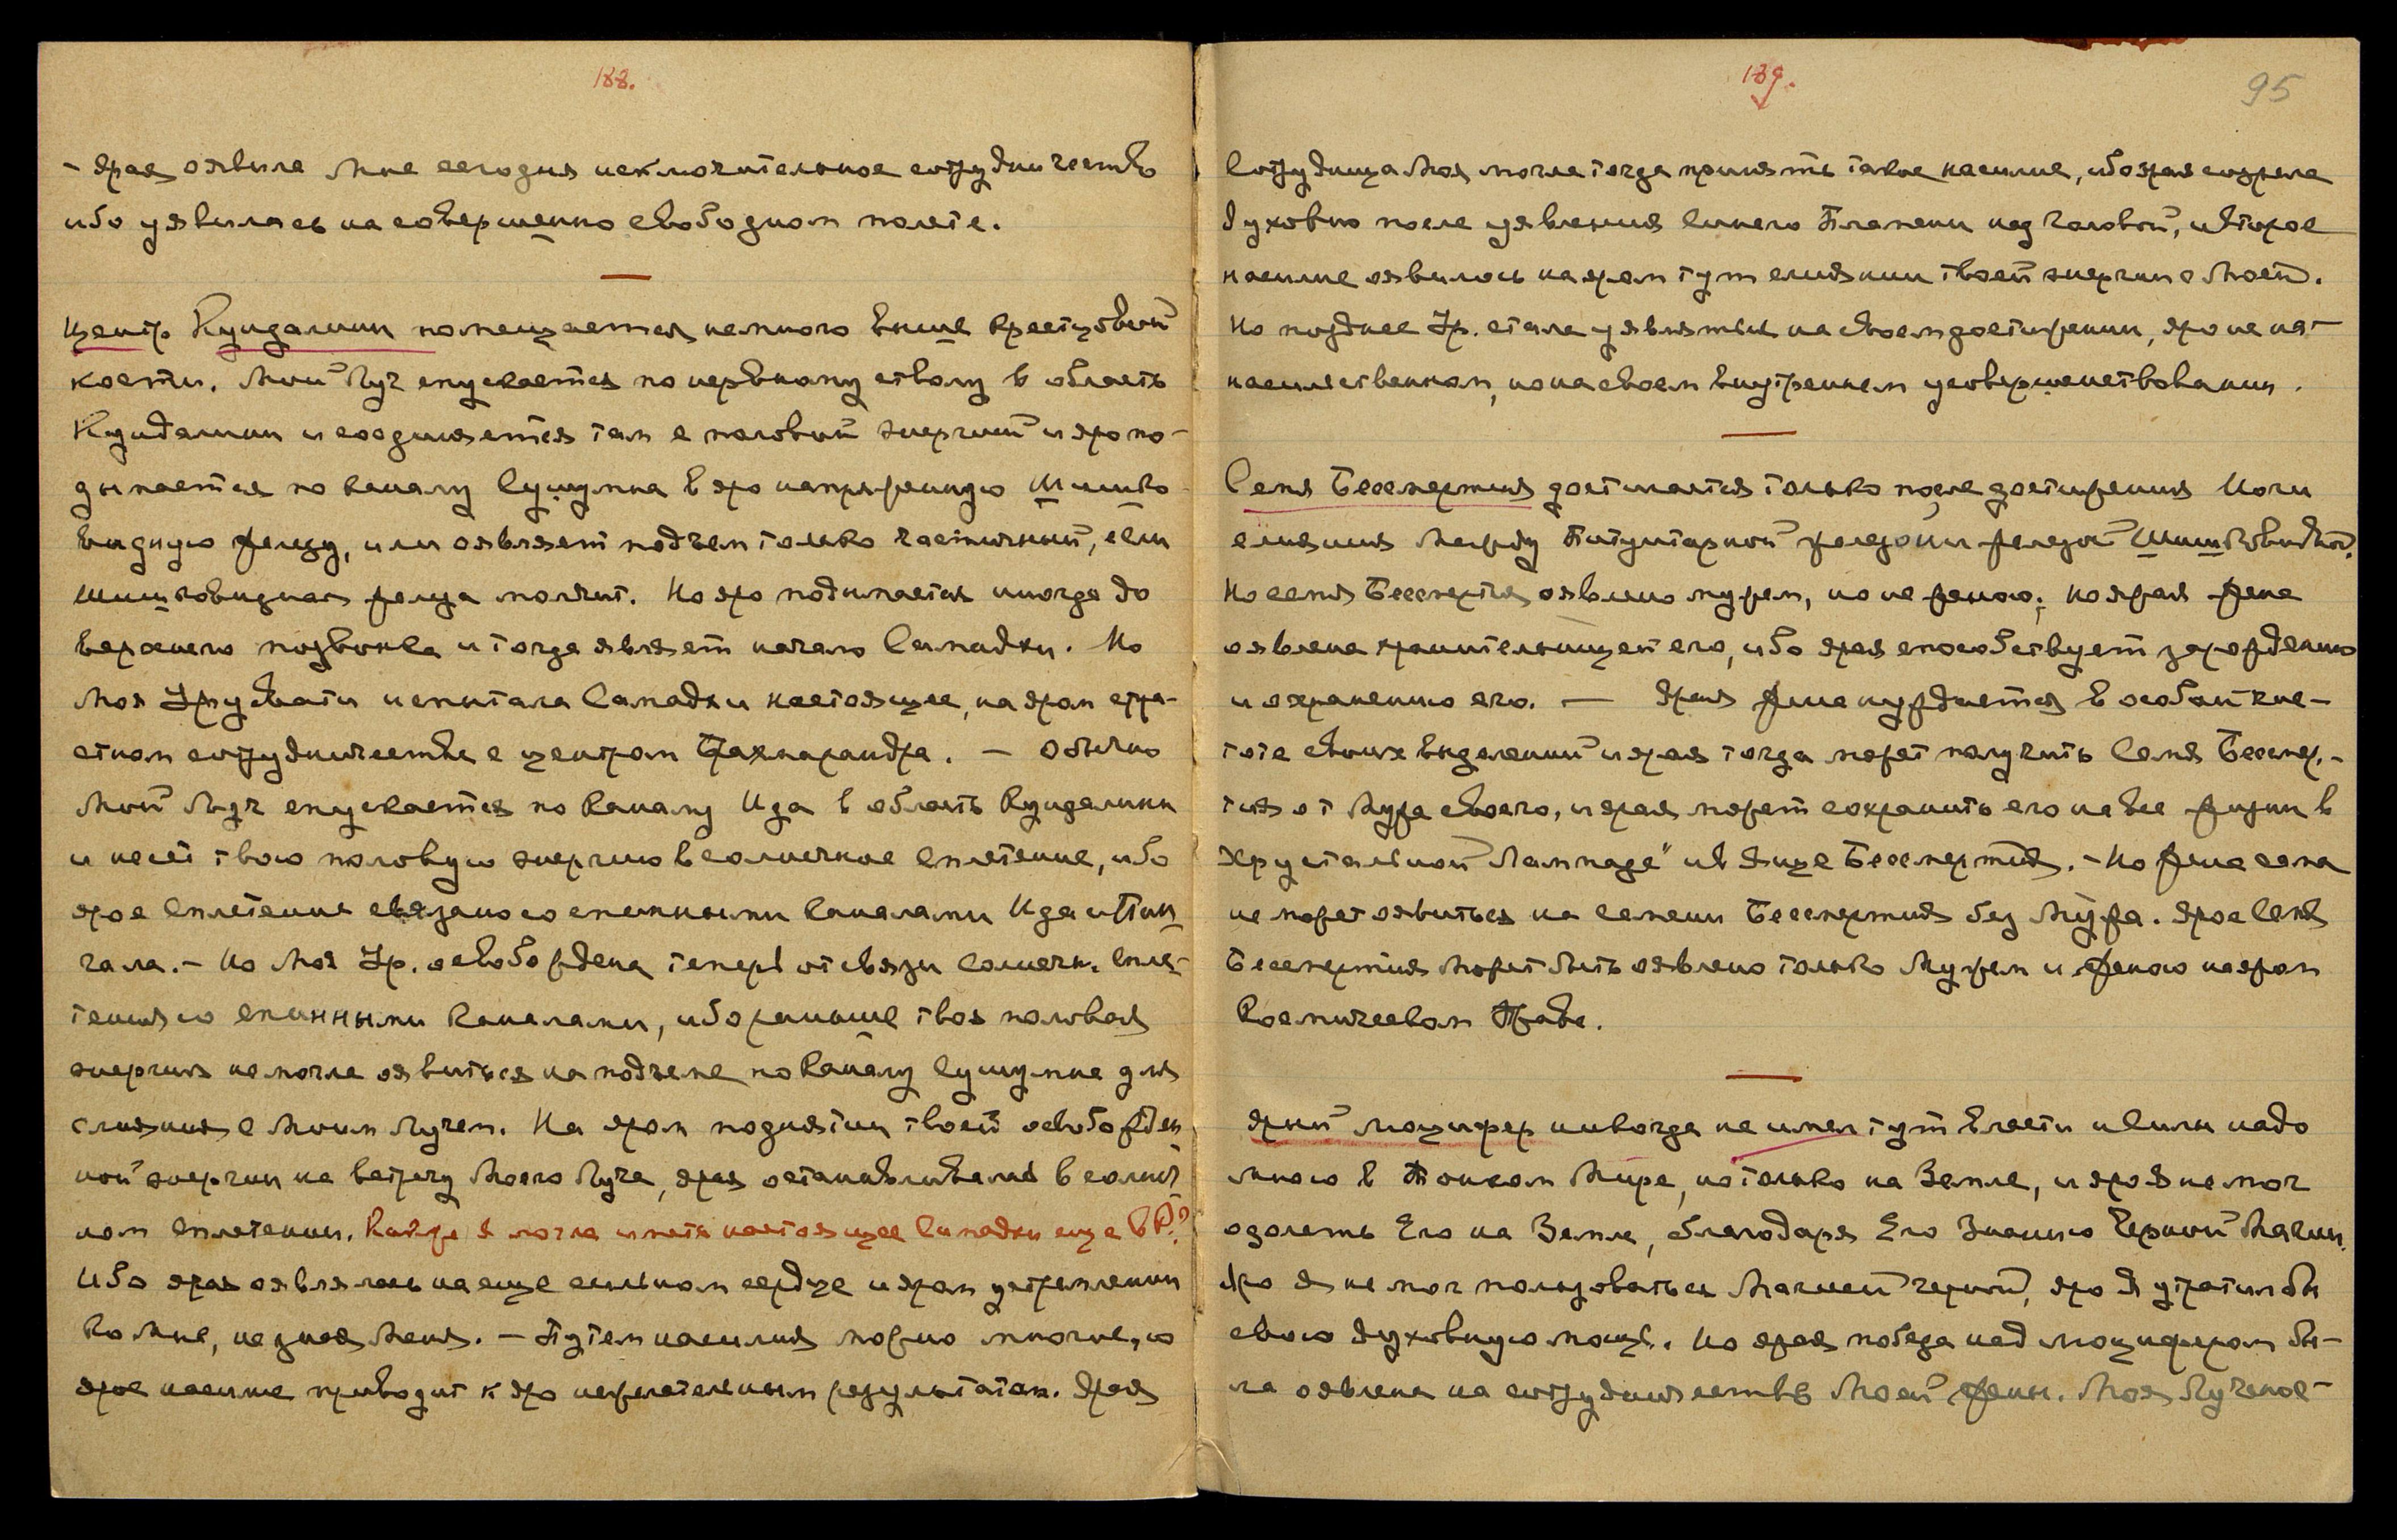 188.
- Ярая оявила Мне сегодня исключительное сотрудничество
ибо уявилась на совершенно свободном полете.
Центр Кундалини помещается немного выше крестцовой
кости. Мой Луч спускается по нервному стволу в область
Кундалини и соединяется там с половой энергией и яро по-
дымается по каналу Сушумна в яро напряженную Шишко-
видную железу, или оявляет подъем только частичный, если
шишковидная железа молчит. Но яро подымается иногда до
верхнего позвонка и тогда являет начало Самадхи. Но
Моя Урусвати испытала Самадхи настоящее, на яром стра-
стном сотрудничестве с центром Брахмарандра. — Обычно
Мой Луч спускается по каналу Ида в область Кундалини
и несет твою половую энергию в солнечное сплетение, ибо
ярое сплетение связано со спинными каналами Ида и Пин-
гала. - Но Моя Ур. освобождена теперь от связи солнечн. спле-
тения со спинными каналами, ибо раньше твоя половая
энергия не могла оявиться на подъеме по каналу Сушумна для
слияния с Моим Лучем. На яром поднятии твоей освобожден-
ной энергии на встречу Моего Луча, ярая останавливалась в солнеч-
ном сплетении. Как же я могла иметь настоящее Самадхи еще в Р.?
Ибо ярая оявлялась на еще сильном сердце и яром устремлении
ко Мне, не зная Меня. - Путем насилия можно многое, но
ярое насилие приводит к яро нежелательным результатам. Ярая
189.
95
Сотрудница Моя могла тогда принять такое насилие, ибо ярая созрела
духовно после уявления Синего Пламени над головой, и второе
насилие оявилось на яром тут слиянии твоей энергии с Моей.
Но позднее Ур. стала уявляться на своем достижении, яро не на-
насильственном, но на своем внутреннем усовершенствовании.
Семя Бессмертия достигается только после достижения Йоги
слияния между Питуитарной железой и железой Шишковидной.
Но семя Бессмертия оявлено мужем, но не женою; но ярая жена
оявлена хранительницей его, ибо ярая способствует зарождению
и сохранению его. — Ярая жена нуждается в особой чис-
тоте своих выделений и ярая тогда может получить Семя Бессмер-
тия от Мужа своего, и ярая может сохранить его на все жизни в
Хрустальной Лампаде" и в Яйце Бессмертия. - Но жена сама
не может оявиться на семени Бессмертия без Мужа. Ярое Семя
Бессмертия может быть оявлено только Мужем и женою на яром
Космическом Праве.
Ярый Люцифер никогда не имел тут власти и силы надо
мною в Тонком Мире, но только на Земле, и яро Я не мог
одолеть Его на Земле, благодаря Его Знанию Черной Магии.
Яро Я не мог пользоваться Магией черной, яро Я утратил бы
свою духовную мощь. Но ярая победа над Люцифером бы-
ла оявлена на сотрудничестве Моей Жены. Моя Лученос-